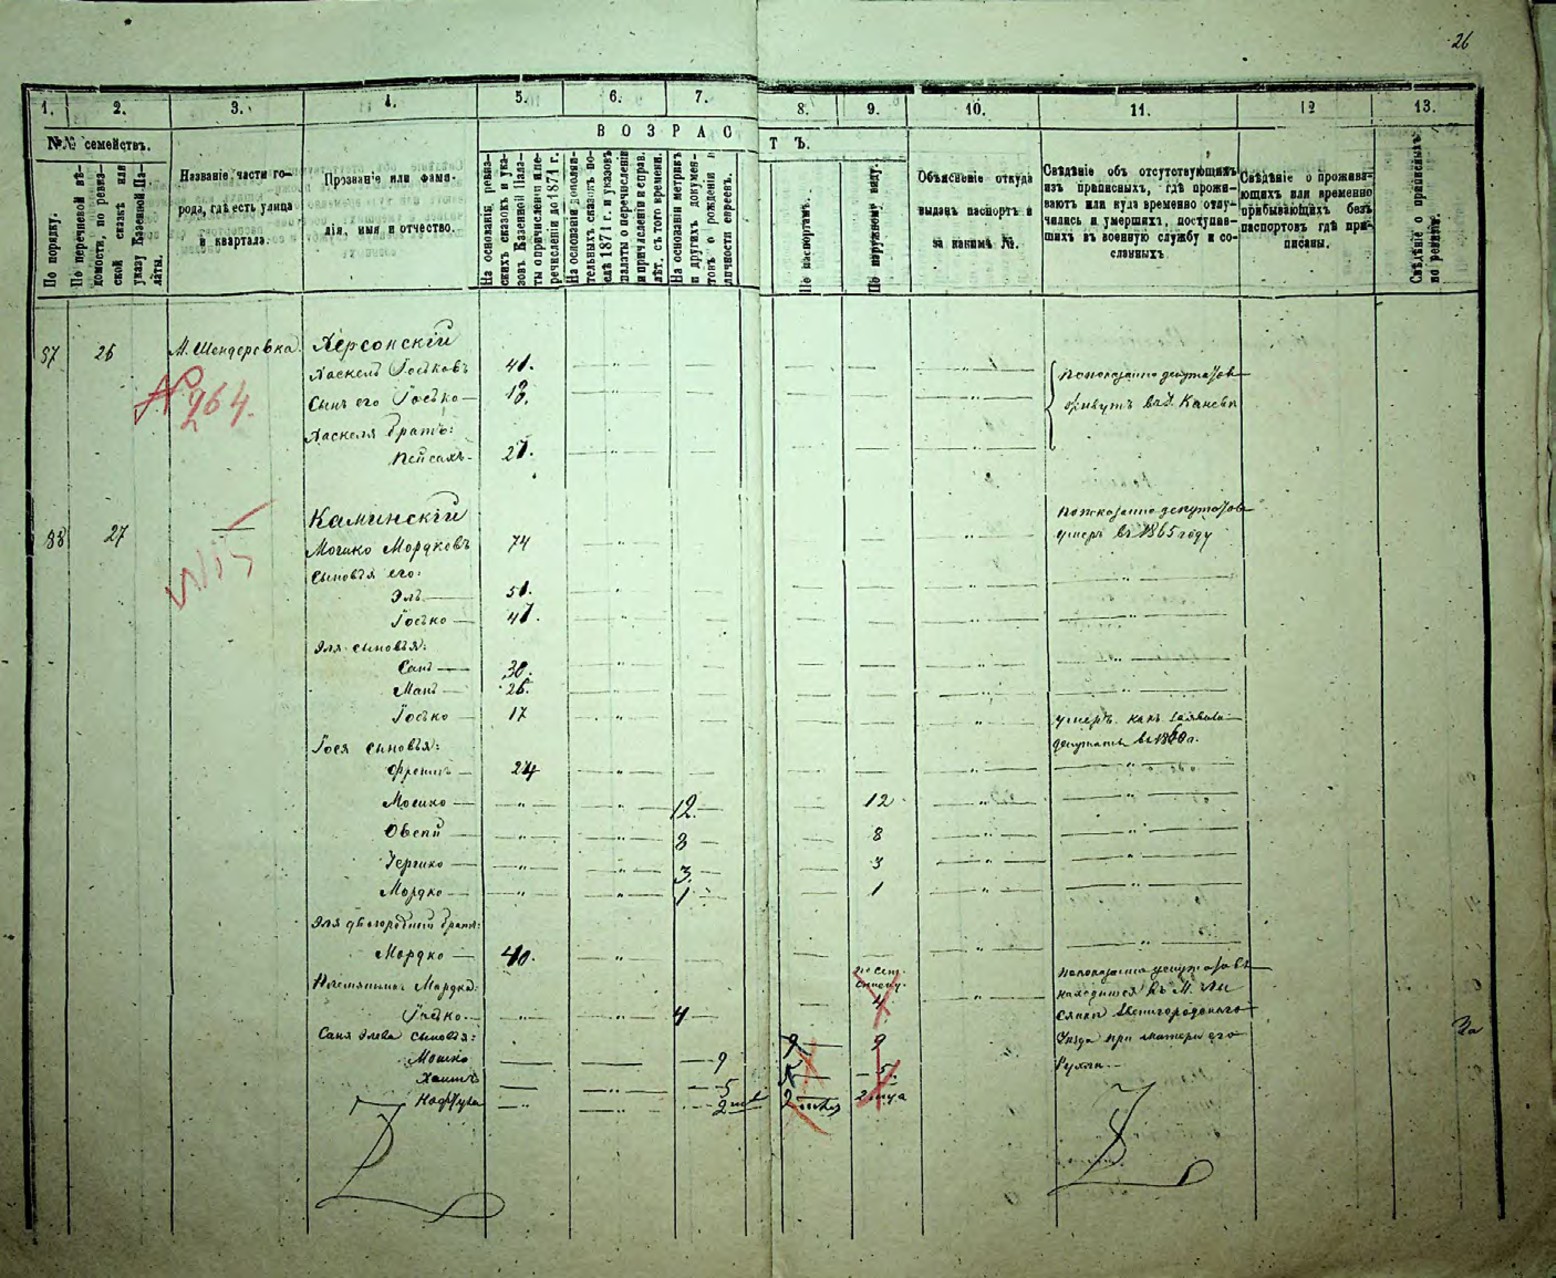 26
1. 2. 3. 4. 5. 6. 7. 8. 9. 10. 11. 12 13.
№№ семействъ.
По порядку.
По перечневой вѣ-
домости, по ревиз-
ской сказкѣ или
указу Казенной Па-
латы.
Названіе части го-
рода, гдѣ есть улица
и квартала.
Прозваніе или фами-
лія, имя и отчество.
ВОЗРАСТЪ.
На основаніи ревиз-
скихъ сказокъ и ука-
зовъ Казенной Пала-
ты о причисленіи и пе-
речисленіи до 1871 г.
На основаніи дополни-
тельныхъ сказокъ по-
слѣ 1871 г. и указовъ
палаты о перечисленіи
и причисленіи и справ.
лѣт. съ того времени.
На основаніи метрикъ
и другихъ докумен-
товъ о рожденіи и
личности евреевъ.
По паспортамъ.
По наружному виду.
Объясненіе откуда
выданъ паспортъ и
за какимъ №.
Свѣдѣніе объ отсутствующихъ
изъ приписныхъ, гдѣ прожи-
ваютъ или куда временно отлу-
чились и умершихъ, поступив-
шихъ въ военную службу и со-
сланныхъ
Свѣдѣніе о прожива-
ющихъ или временно
прибывающихъ безъ
паспортовъ гдѣ при-
писаны.
Свѣдѣніе о приписныхъ
по ревизіи.
37 26 М. Шендеровка Херсонскій
№ 264.
Хаскель Госьковъ 41.
Сынъ его Госько 18.
Хаскеля братъ:
Пейсахъ 21.
По показанію депутатовъ
живутъ въ г. Каневѣ
38 27 Каминскій
Мошко Мордковъ 74
По показанію депутатовъ
умеръ въ 1865 году
Сыновья его:
Эль 51.
Госько 41.
Эля сыновья:
Сань 30.
Мань 26.
Госько 17
умеръ какъ заявили
депутаты въ 1860 г.
Гося сыновья:
24
Мошко 12. 12.
Овсей 8 8
Гершко 3. 3
Мордко 1 1
Эля двоюродный братъ:
Мордко 40.
Племянникъ Мордка:
Госько 4 4
По показанію депутатовъ
находится въ М. Лы
сянкѣ Звенигородскаго
Уѣзда при матери его
Рухли
Саня Элева сыновья:
Мошко 9 9 9
Хаимъ 5 5 5.
2 2 2
За